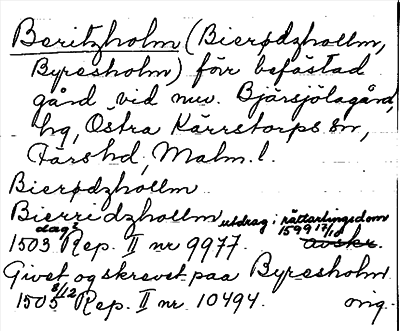 Beritzholm (Bierødzhollm,
Byresholm) förr befästad
gård vid nuv. Bjärsjölagård,
hg, Östra Kärrstorps sn,
Färs hd, Malm. l.
Bierødzhollm
Bierridzhollm utdrag i rättartingsdom
1503 dag? Rep. II nr 9977. 1599 17/10 avskr.
Givet og skrevet paa Byresholm
1505 8/12 Rep. II nr 10494. orig.